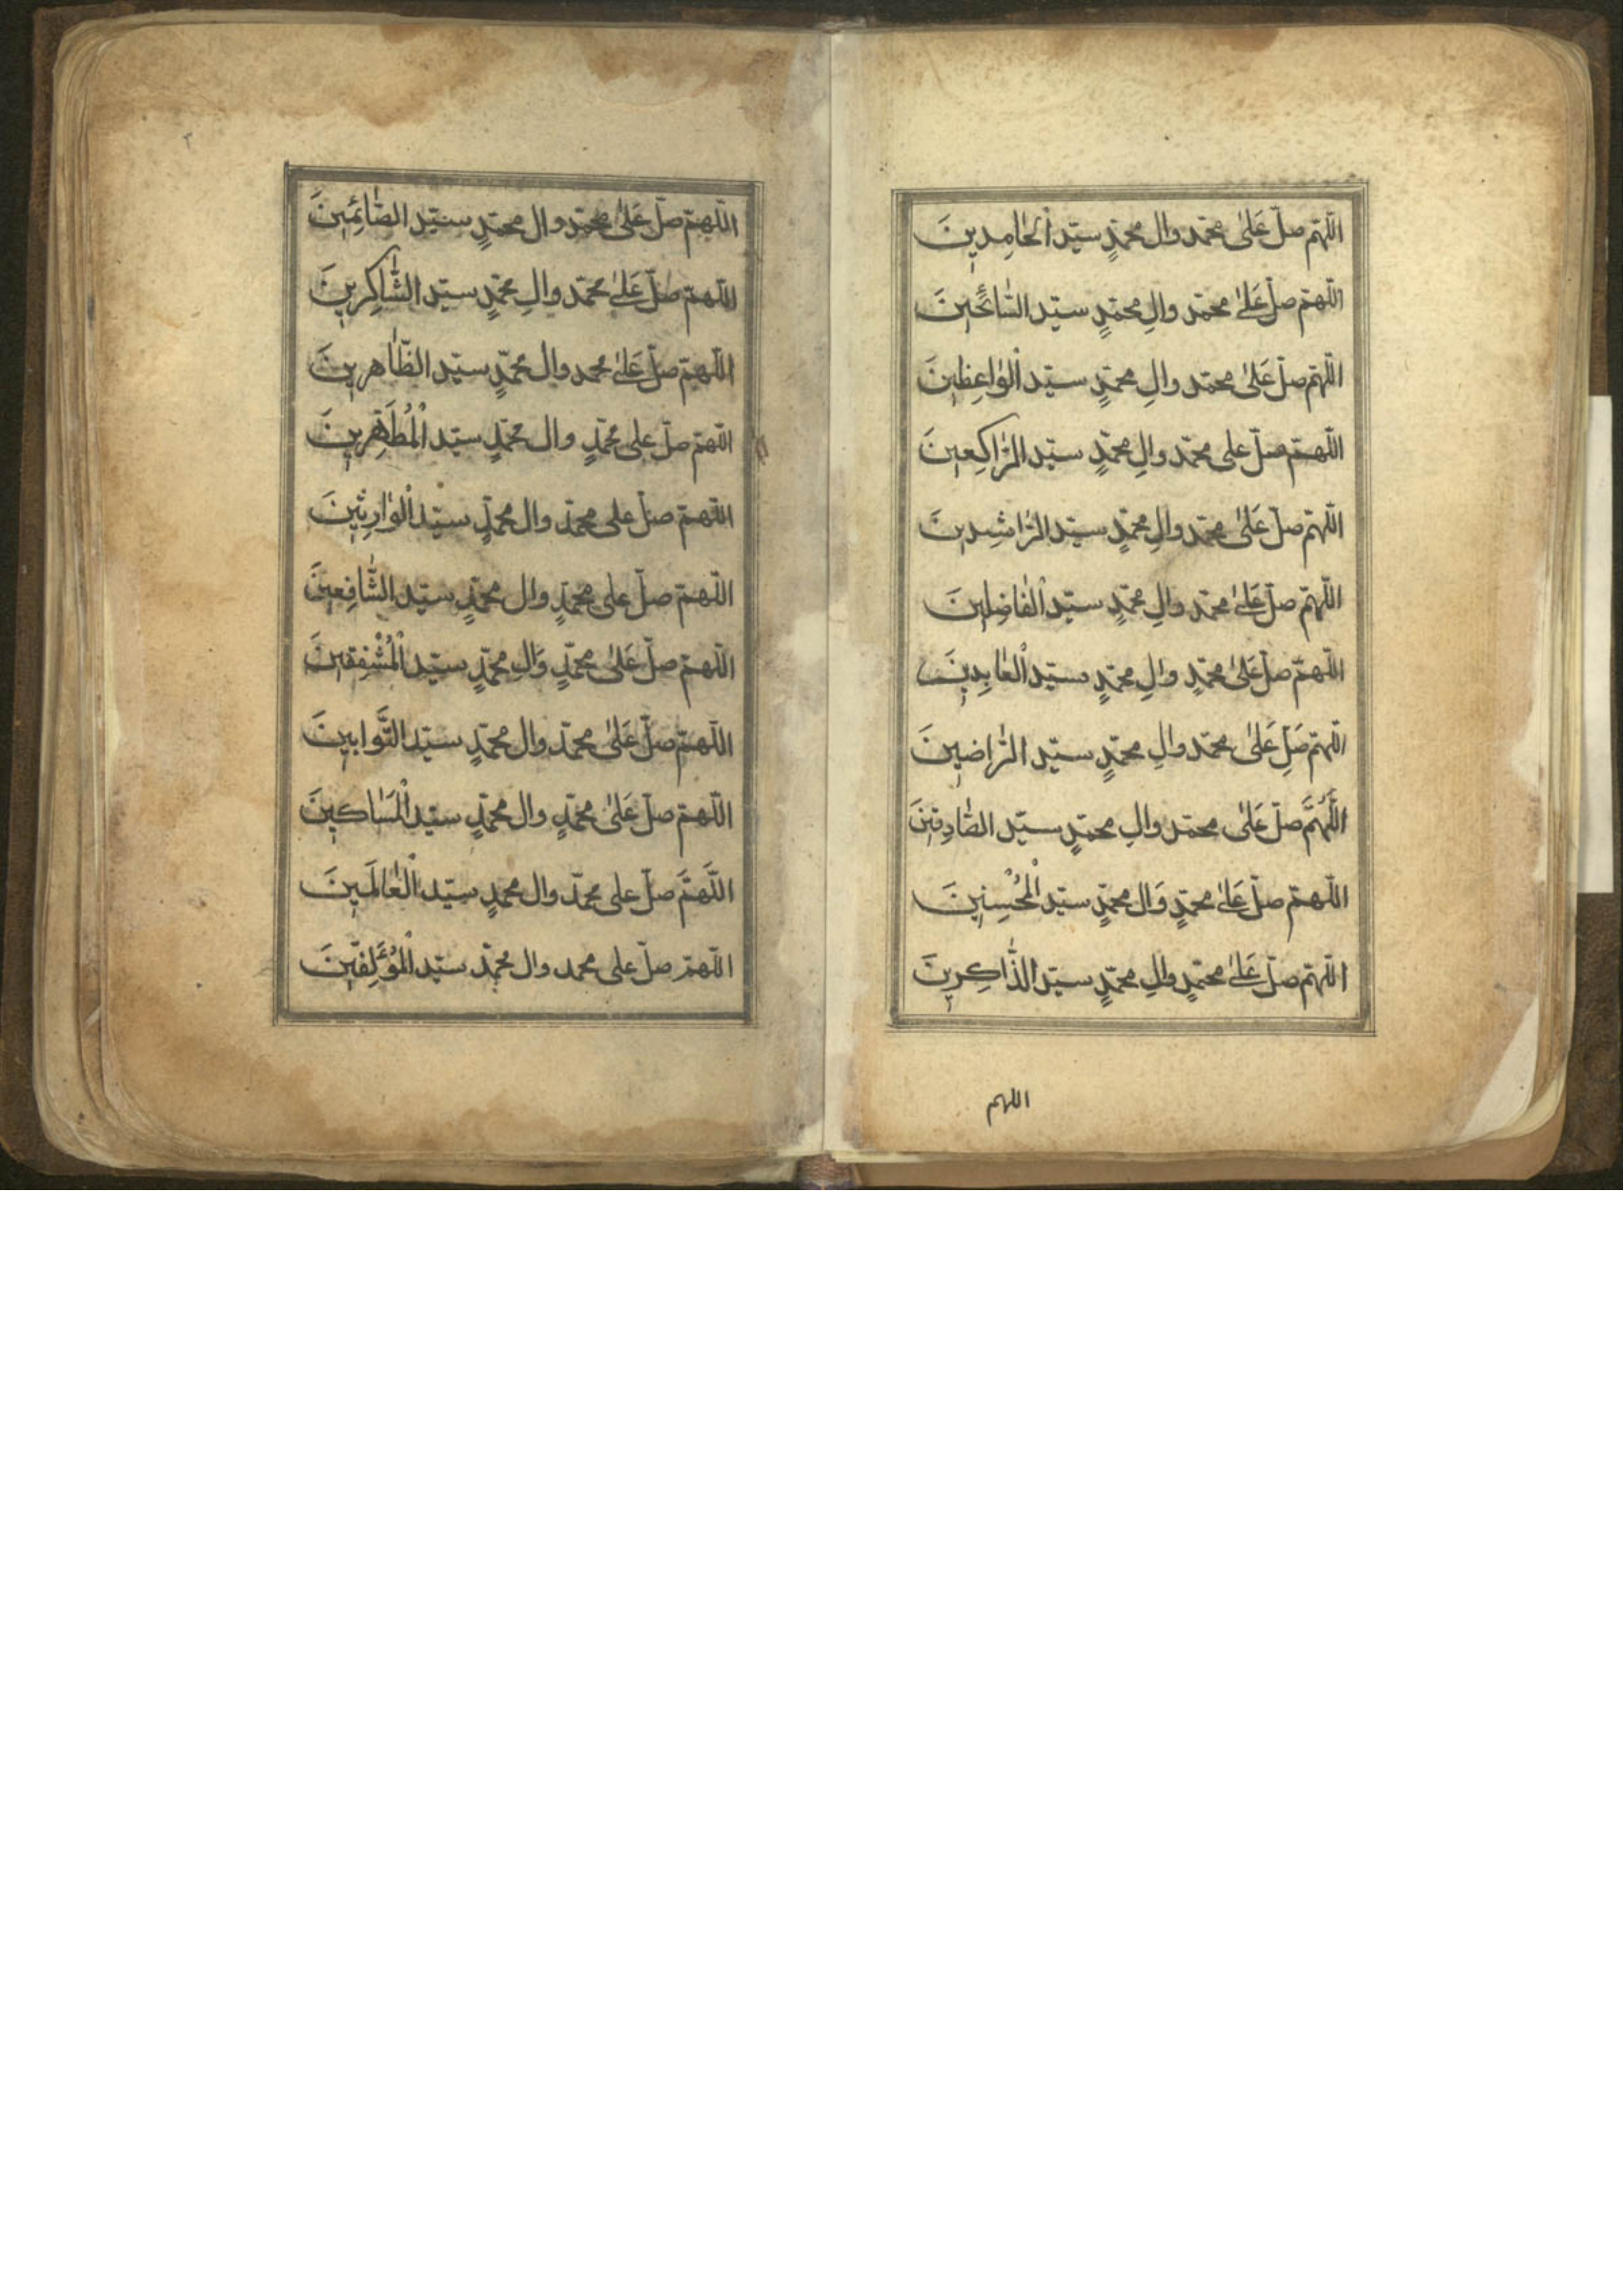 اللّهمّ صلّ عَلىٰ محمّد وال محمّدٍ سيّد الْحٰامِدينَ
اللّهمّ صلّ عَلىٰ محمّد والِ محمّدٍ سيّد السّٰائحينَ
اللّهمّ صلّ عَلىٰ محمّد والِ محمّدٍ سيّد الْوٰاعِظينَ
اللّهمّ صلّ على محمّد والِ محمّدٍ سيّد الرّٰاكِعينَ
اللّهمّ صلّ عَلىٰ محمّد والِ محمّدٍ سيّد الرّٰاشِدينَ
اللّهمّ صلّ عَلىٰ محمّد والِ محمّدٍ سيّد الْفٰاضِلينَ
اللّهمّ صلّ عَلىٰ محمّدٍ والِ محمّدٍ سيّد الْعٰابِدينَ
اللّهمّ صَلِّ عَلىٰ محمّد والِ محمّدٍ سيّد الرّٰاضينَ
اللّٰهُمَّ صلّ عَلىٰ محمّد والِ محمّدٍ سيّد الصّٰادِقينَ
اللّهمّ صلّ عَلىٰ محمّدٍ وَال محمّدٍ سيّد الْمُحْسِنينَ
اللّهمّ صلّ عَلىٰ محمّدٍ والِ محمّدٍ سيّد الذّٰاكِرينَ
اللهم
٣
اللّهمّ صلّ عَلىٰ محمّد وال محمّدٍ سيّد الصّٰائِمينَ
اللّهمّ صلّ عَلىٰ محمّد والِ محمّدٍ سيّد الشّٰاكِرينَ
اللّهمّ صلّ عَلىٰ محمد وال محمّدٍ سيّد الطّٰاهرينَ
اللّهمّ صلّ على محمّدٍ وال محمّدٍ سيّد الْمُطَهِّرينَ
اللّهمّ صلّ على محمّد وال محمّدٍ سيّد الْوٰارِثينَ
اللّهمّ صلّ على محمّدٍ وال محمّدٍ سيّد الشّٰافِعينَ
اللّهمّ صلّ عَلىٰ محمّدٍ وَالِ محمّدٍ سيّد الْمُشْفِقينَ
اللّهمّ صلّ عَلىٰ محمّد وال محمّدٍ سيّد التَّوابينَ
اللّهمّ صلّ عَلىٰ محمّدٍ وال محمّدٍ سيّد الْمَسٰاكينَ
اللّهمَّ صلّ على محمّد وال محمدٍ سيّد الْعٰالَمينَ
اللّهمّ صلّ على محمد وال محمّد سيّد الْمُؤَلِّفينَ